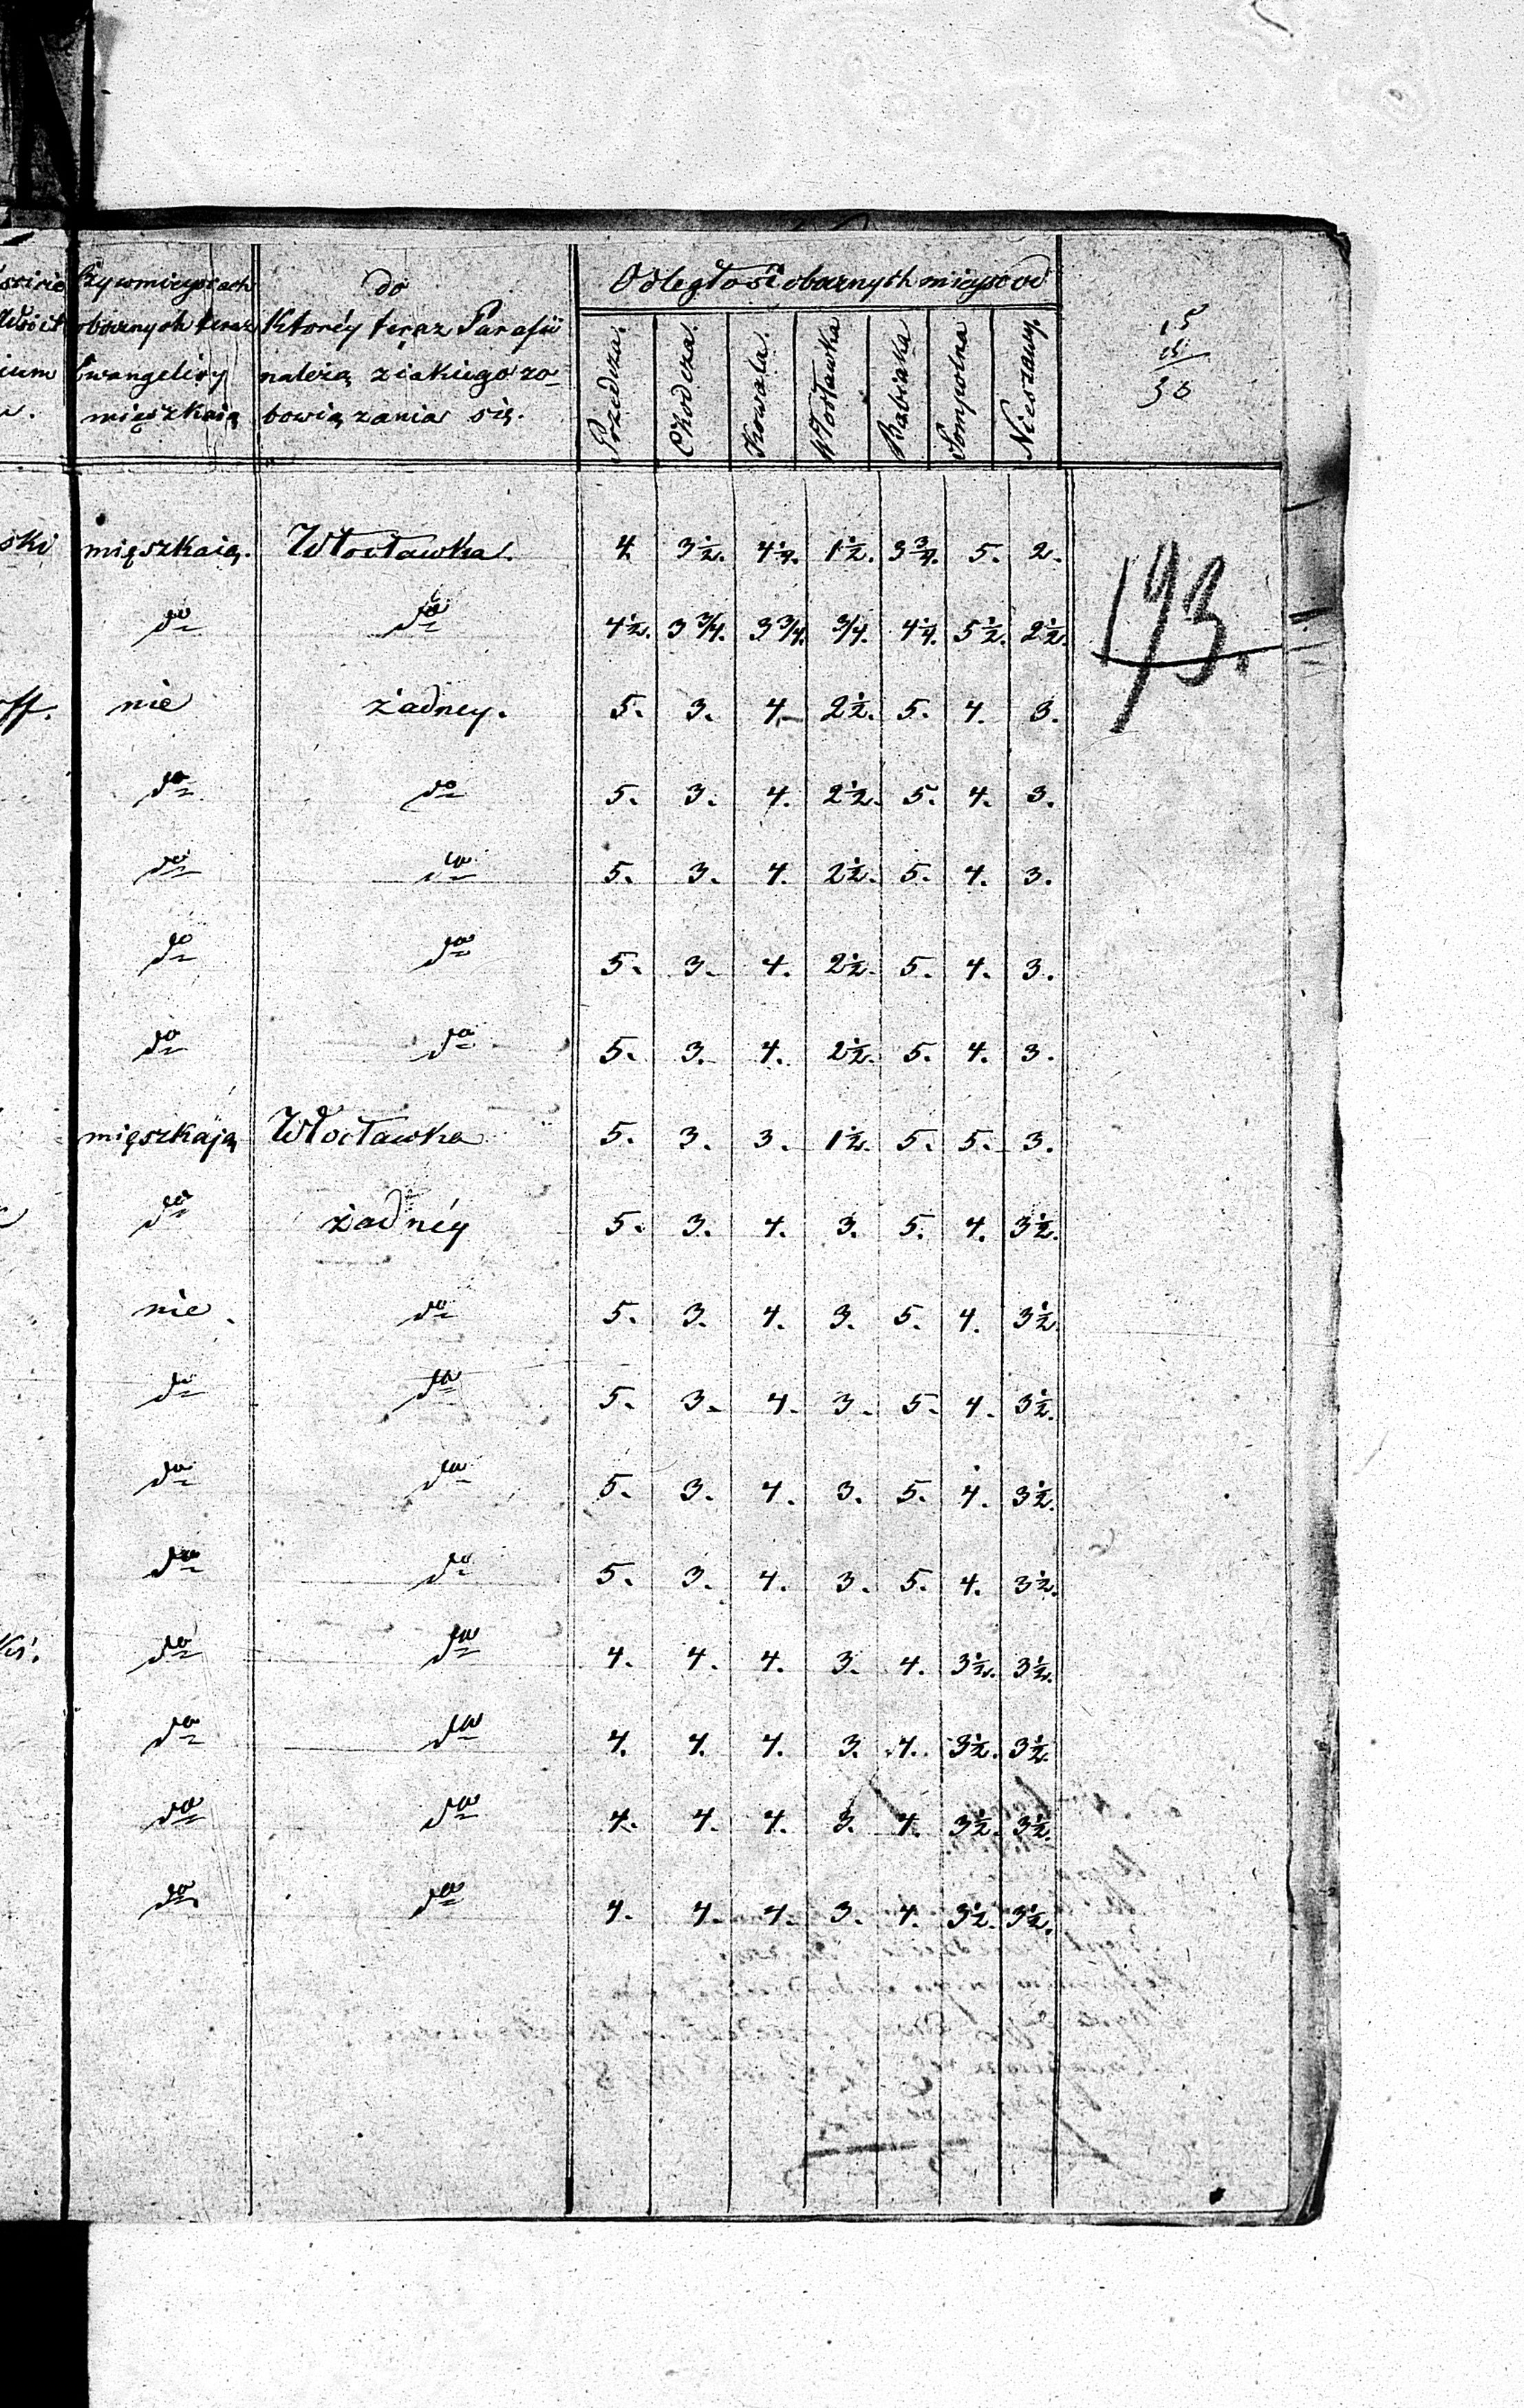 Czy w mieyscach obocznych teraz Ewangelicy mięszkaią
do Ktoréy teraz Parafii należą z iakiego zobowiązania się.
Odległość obocznych mieysc od
Przedcza. Chodcza. Kowala. Włocławka Babiaka Sompolna Nieszawy.
15
15
30
ski mięszkaią. Włocławka. 4 3½. 4¼. 1½. 3¾. 5. 2.
do do 4½. 3¾. 3¾. ¾. 4¼. 5½. 2½.
193.
off. nie żadney. 5. 3. 4. 2½. 5. 4. 3.
do do 5. 3. 4. 2½. 5. 4. 3.
do do 5. 3. 4. 2½. 5. 4. 3.
do do 5. 3. 4. 2½. 5. 4. 3.
do do 5. 3. 4. 2½. 5. 4. 3.
mięszkają Włocławka 5. 3. 3. 1½. 5. 5. 3.
do żadnéy 5. 3. 4. 3. 5. 4. 3½.
nie. do 5. 3. 4. 3. 5. 4. 3½.
do do 5. 3. 4. 3. 5. 4. 3½.
do do 5. 3. 4. 3. 5. 4. 3½.
do do 5. 3. 4. 3. 5. 4. 3½.
do do 4. 4. 4. 3. 4. 3½. 3½.
do do 4. 4. 4. 3. 4. 3½. 3½.
do do 4. 4. 4. 3. 4. 3½. 3½.
do do 4. 4. 4. 3. 4. 3½. 3½.